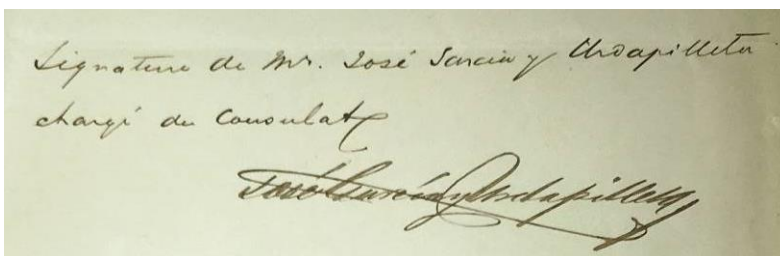 Signature de Mr. José García y Urdapilleta
chargé du Consulat
José García y Urdapilleta